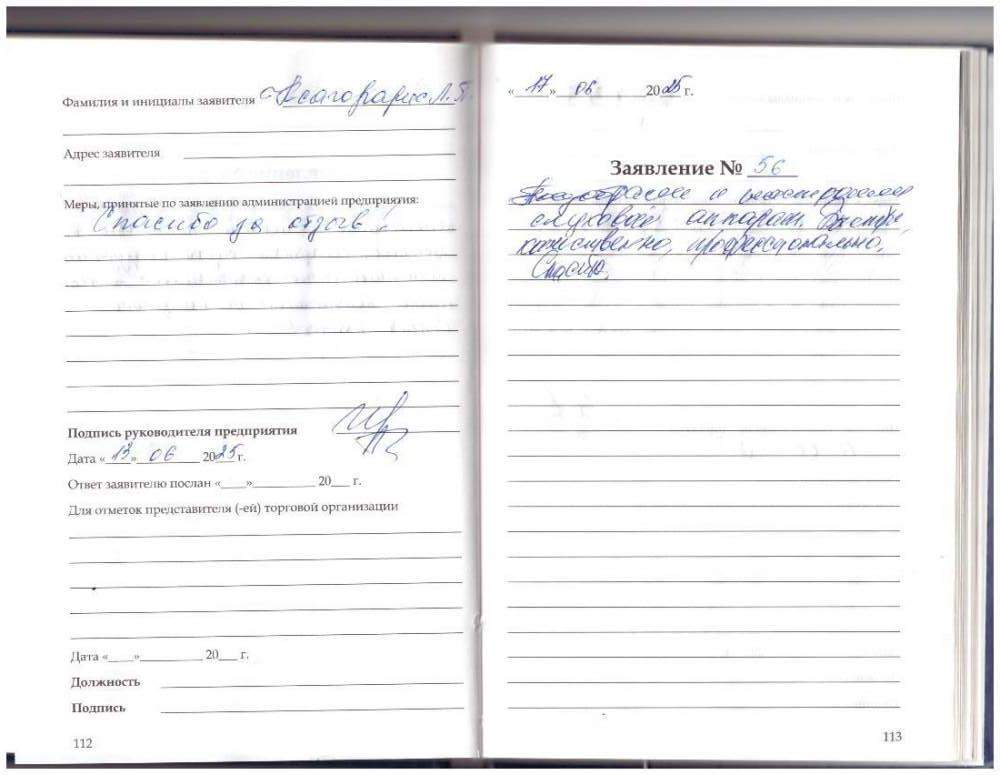 Фамилия и инициалы заявителя Л.
Адрес заявителя
Меры, принятые по заявлению администрацией предприятия:
Спасибо за отзыв!
Подпись руководителя предприятия
Дата «13» 06 2025 г.
Ответ заявителю послан «____»__________ 20___ г.
Для отметок представителя (-ей) торговой организации
Дата «____»__________ 20___ г.
Должность
Подпись
112
«17» 06 2025 г.
Заявление № 56
и
слуховой аппарат. Быстро,
качественно, профессионально.
Спасибо.
113